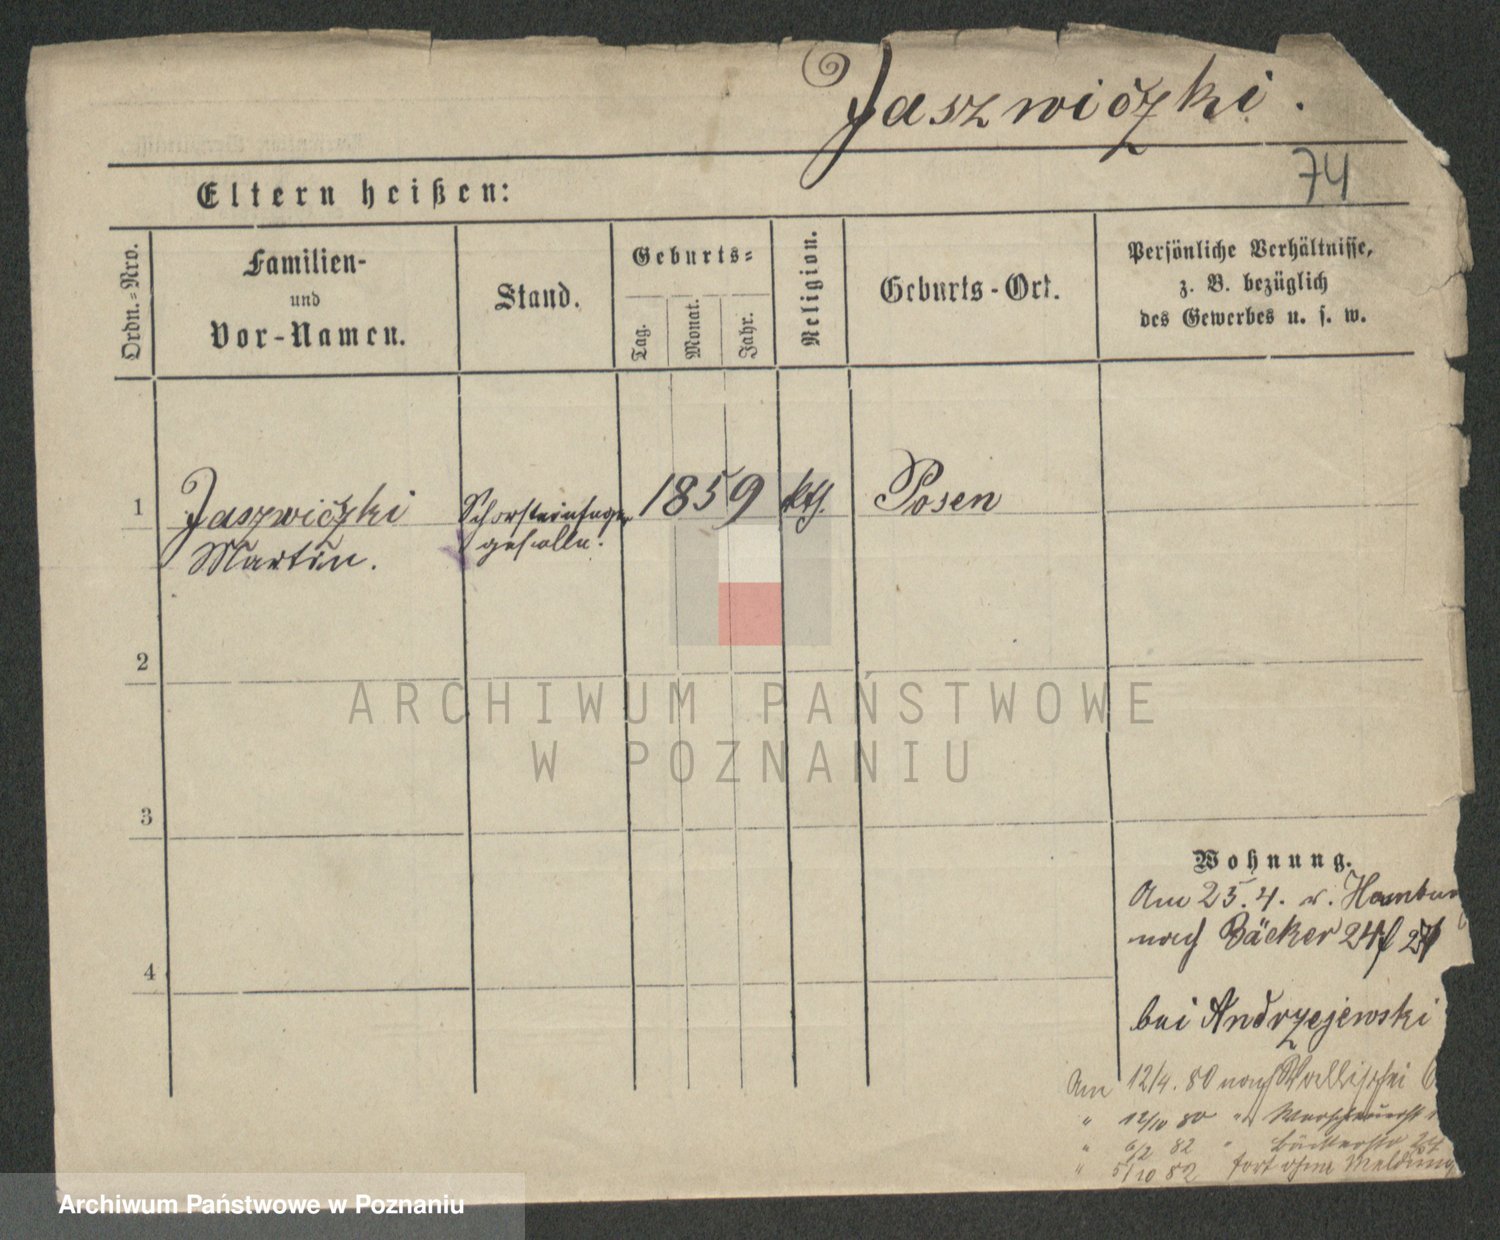 Jaszwiczki.
74
Eltern heißen:
Ordn.-Nro.
Familien-
und
Vor-Namen.
Stand.
Geburts-
Tag.
Monat.
Jahr.
Religion.
Geburts-Ort.
Persönliche Verhältnisse,
z. B. bezüglich
des Gewerbes u. s. w.
1
Jaszwiczki
Martin.
Schornsteinfeger
geselle.
1859
kth.
Posen
2
3
4
Wohnung.
Am 25. 4. v. Hambur
nach Bäcker 24/27
bei Andrzejewski
Am 12/4. 80 nach Wallischei
" 12/10 80 "
" 6/2 82 " Bäckerstr 24
" 5/10 82 fort ohne Meldung
ARCHIWUM PAŃSTWOWE
W POZNANIU
Archiwum Państwowe w Poznaniu